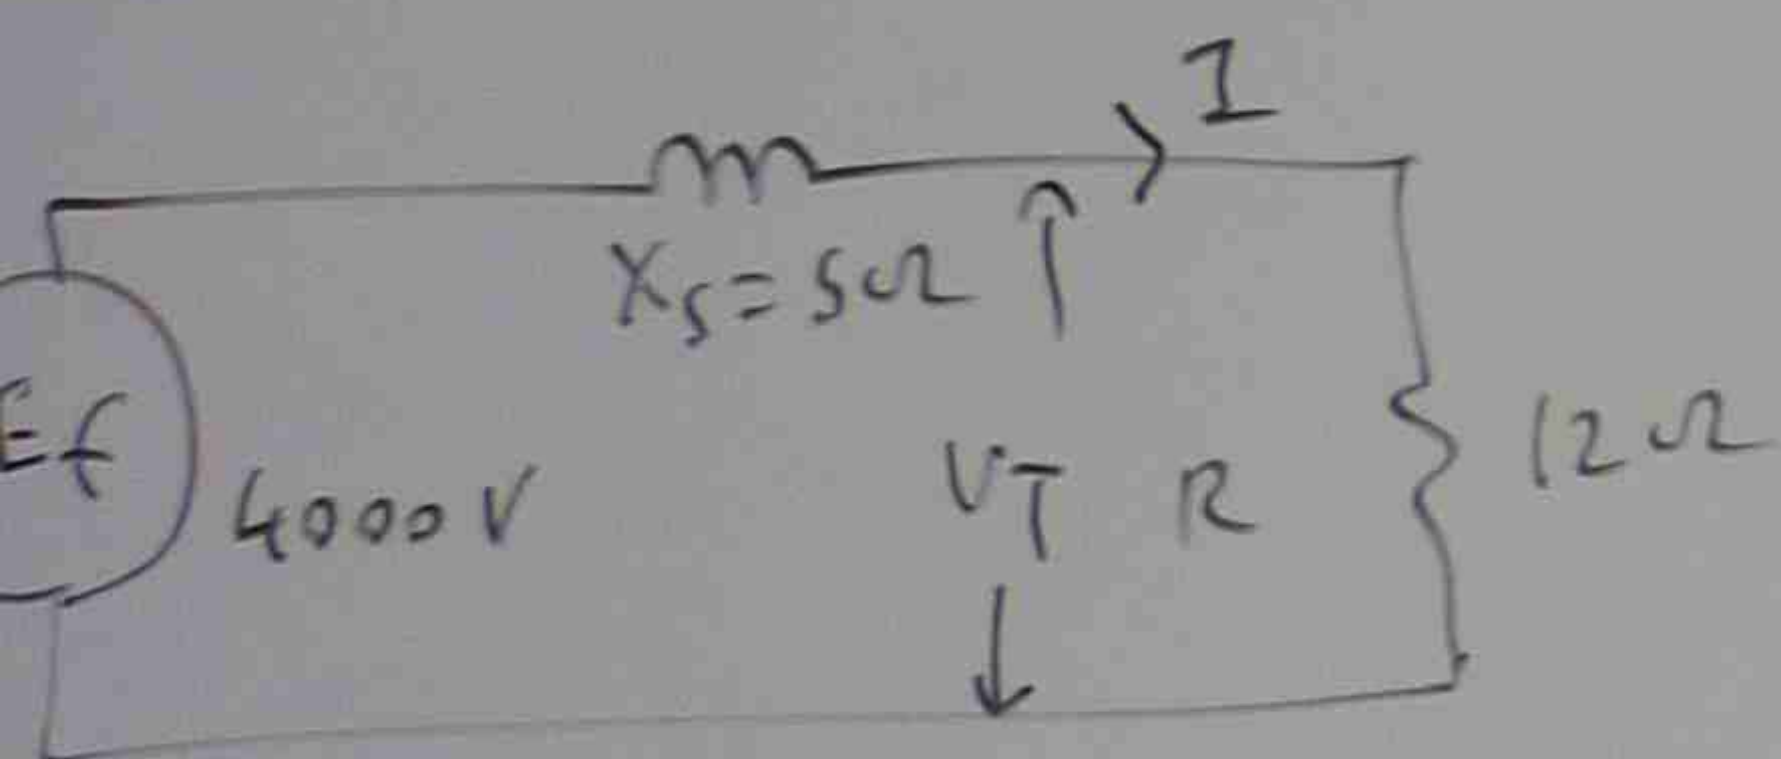 I
X_S = 5Ω
Ef
4000 V
V_T
R
12 Ω